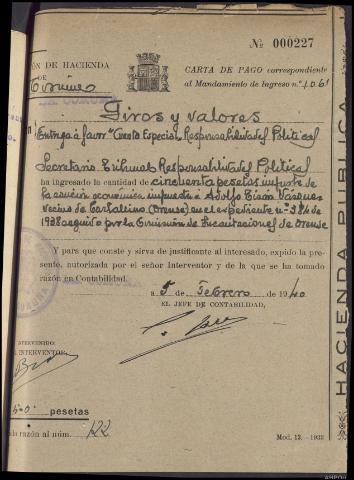 Nº 000227
ÓN DE HACIENDA
DE
CARTA DE PAGO correspondiente
al Mandamiento de Ingreso n.º 1061
Giros y valores
Entrega a favor "Cuenta Especial Responsabilidades Políticas
Secretario Tribunal Responsabilidades Políticas
ha ingresado la cantidad de cincuenta pesetas importe de
la sanción económica impuesta a Adolfo Vázquez
vecino de Carballino (Orense) en el expediente nº 384 de
1938 seguido por la Comisión de Incautaciones de Orense
Y para que conste y sirva de justificante al interesado, expido la pre-
sente, autorizada por el señor Interventor y de la que se ha tomado
razón en Contabilidad.
a 5 de Febrero de 1940
EL JEFE DE CONTABILIDAD,
INTERVENIDO:
INTERVENTOR,
50 pesetas
da razón al núm. 122
Mod. 12. - 1932
HACIENDA PUBLICA